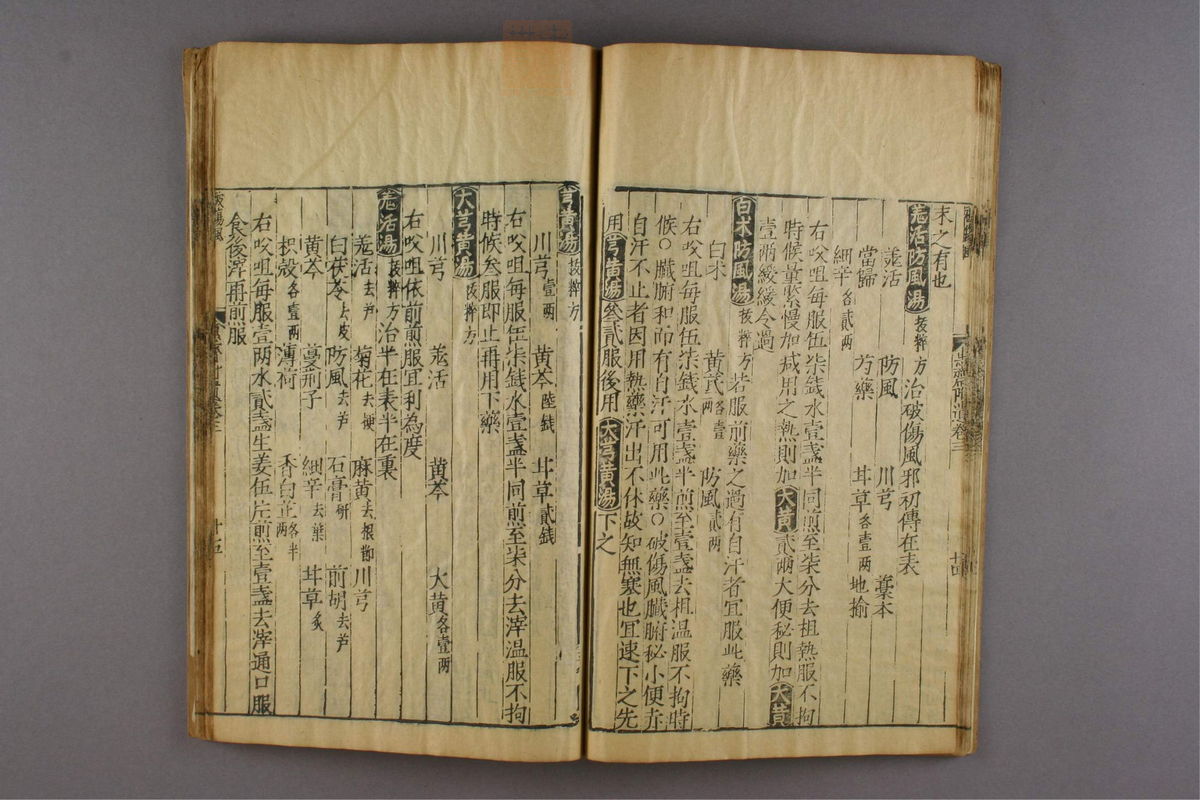 未之有也
羗活防風湯 拔粹方 治破傷風邪初傳在表
羗活 防風 川芎 藁本
當歸 芍藥 甘草各壹两 地揄
細辛各貳两
右㕮咀每服伍柒錢水壹盞半同煎至柒分去柤熱服不拘
時候量緊慢加减用之熱則加大黃貳兩大便秘則加大黃
壹兩緩緩令過
白术防風湯 拔粹方 若服前藥之過有自汗者宜服此藥
白术 黃芪各壹两 防風貳两
右㕮咀每服伍柒錢水壹盞半煎至壹盞去柤溫服不拘時
候○臟腑和而有自汗可用此藥○破傷風臟腑秘小便赤
自汗不止者因用熱藥汗出不休故知無寒也宜速下之先
用芎黃湯叁貳服後用大芎黃湯下之
芎黃湯 拔粹方
川芎壹两 黃芩陸錢 甘草貳錢
右㕮咀每服伍柒錢水壹盞半同煎至柒分去滓溫服不拘
時候叁服即止再用下藥
大芎黃湯 拔粹方
川芎 羗活 黃芩 大黃各壹两
右㕮咀依前煎服宜利為度
羗活湯 拔粹方 治半在表半在裏
羗活去芦 菊花去梗 麻黃去根節 川芎
白茯苓去皮 防風去芦 石膏研 前胡去芦
黃芩 蔓荊子 細辛去葉 甘草炙
枳殼各壹两 薄荷 香白芷各半两
右㕮咀每服壹两水貳盞生姜伍片煎至壹盞去滓通口服
食後滓再煎服
破傷風
十五